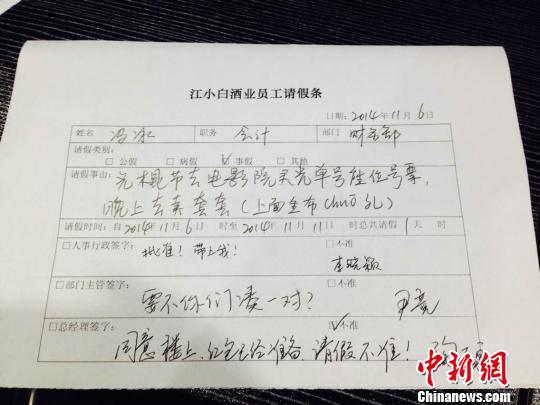 江小白酒业员工请假条
日期: 2014年11月6日
姓名 冯冰 职务 会计 部门 财务部
请假类别:
□公假 □病假 ☑事假 □其他
请假事由: 光棍节去电影院买光单号座位号票,
晚上去卖套套(上面全布chuō孔)
请假时间: 自2014年11月6日 时至2014年11月11日 时总共请假1天 时
□人事行政签字: □不准
批准!带上我! 李晓颖
□部门主管签字: □不准
要不你们凑一对? 尹亮
□总经理签字: ☑不准
同意楼上、红包已经准备,请假不准!
中新网
www.chinanews.com